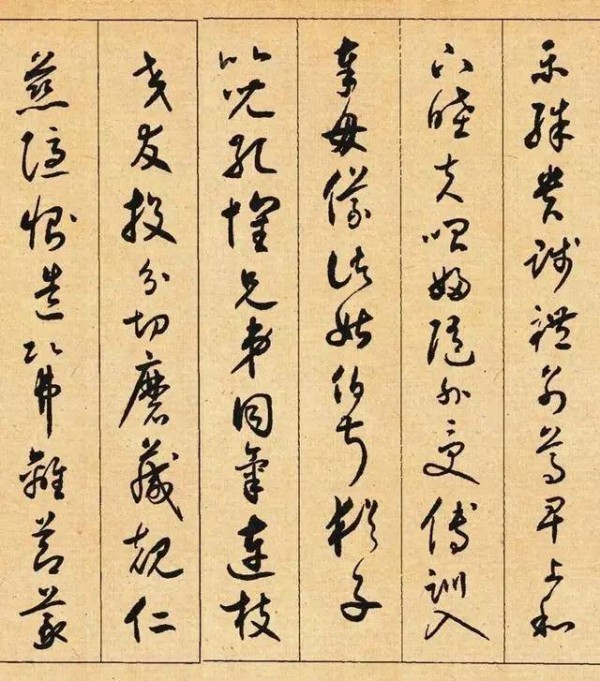 樂殊貴賤禮別尊卑上和
下睦夫唱婦隨外受傅訓入
奉母儀諸姑伯叔猶子
比兒孔懷兄弟同氣連枝
交友投分切磨箴規仁
慈隱惻造次弗離節義